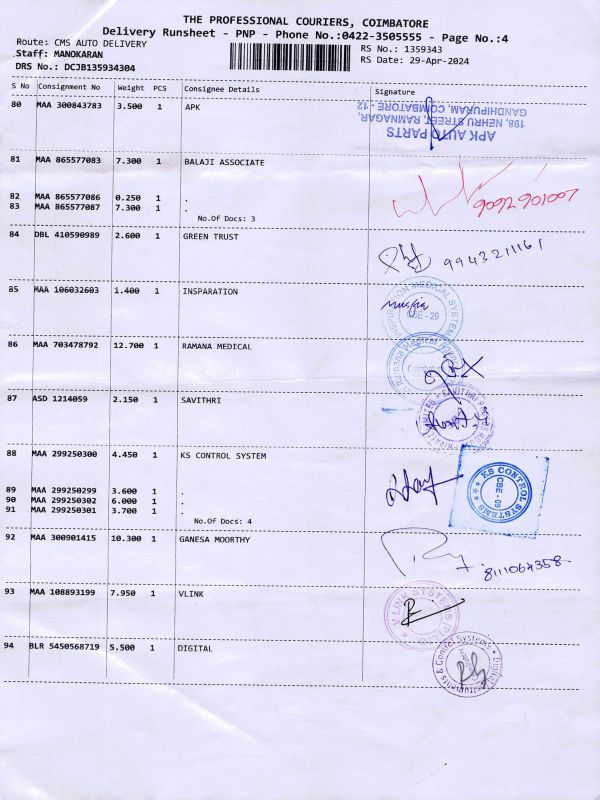 THE PROFESSIONAL COURIERS, COIMBATORE
Delivery Runsheet - PNP - Phone No.:0422-3505555 - Page No.:4
Route: CMS AUTO DELIVERY
RS No.: 1359343
Staff: MANOKARAN
RS Date: 29-Apr-2024
DRS No.: DCJB135934304
S No Consignment No Weight PCS Consignee Details Signature
80 MAA 300843783 3.500 1 APK
APK AUTO PARTS
198, NEHRU STREET, RAMNAGAR,
GANDHIPURAM, COIMBATORE - 12
81 MAA 865577083 7.300 1 BALAJI ASSOCIATE
82 MAA 865577086 0.250 1 .
83 MAA 865577087 7.300 1 .
No.Of Docs: 3
84 DBL 410590989 2.600 1 GREEN TRUST
9943211161
85 MAA 106032603 1.400 1 INSPARATION
INSPIRATION MEDICAL SYSTEM
CBE - 29
86 MAA 703478792 12.700 1 RAMANA MEDICAL
Ramana Medical
87 ASD 1214059 2.150 1 SAVITHRI
88 MAA 299250300 4.450 1 KS CONTROL SYSTEM
KS CONTROL SYSTEMS
CBE - 09
89 MAA 299250299 3.600 1 .
90 MAA 299250302 6.000 1 .
91 MAA 299250301 3.700 1 .
No.Of Docs: 4
92 MAA 300901415 10.300 1 GANESA MOORTHY
8111064358
93 MAA 108893199 7.950 1 VLINK
V LINK SYSTEMS
94 BLR 5450568719 5.500 1 DIGITAL
Digital Instruments & Control Systems